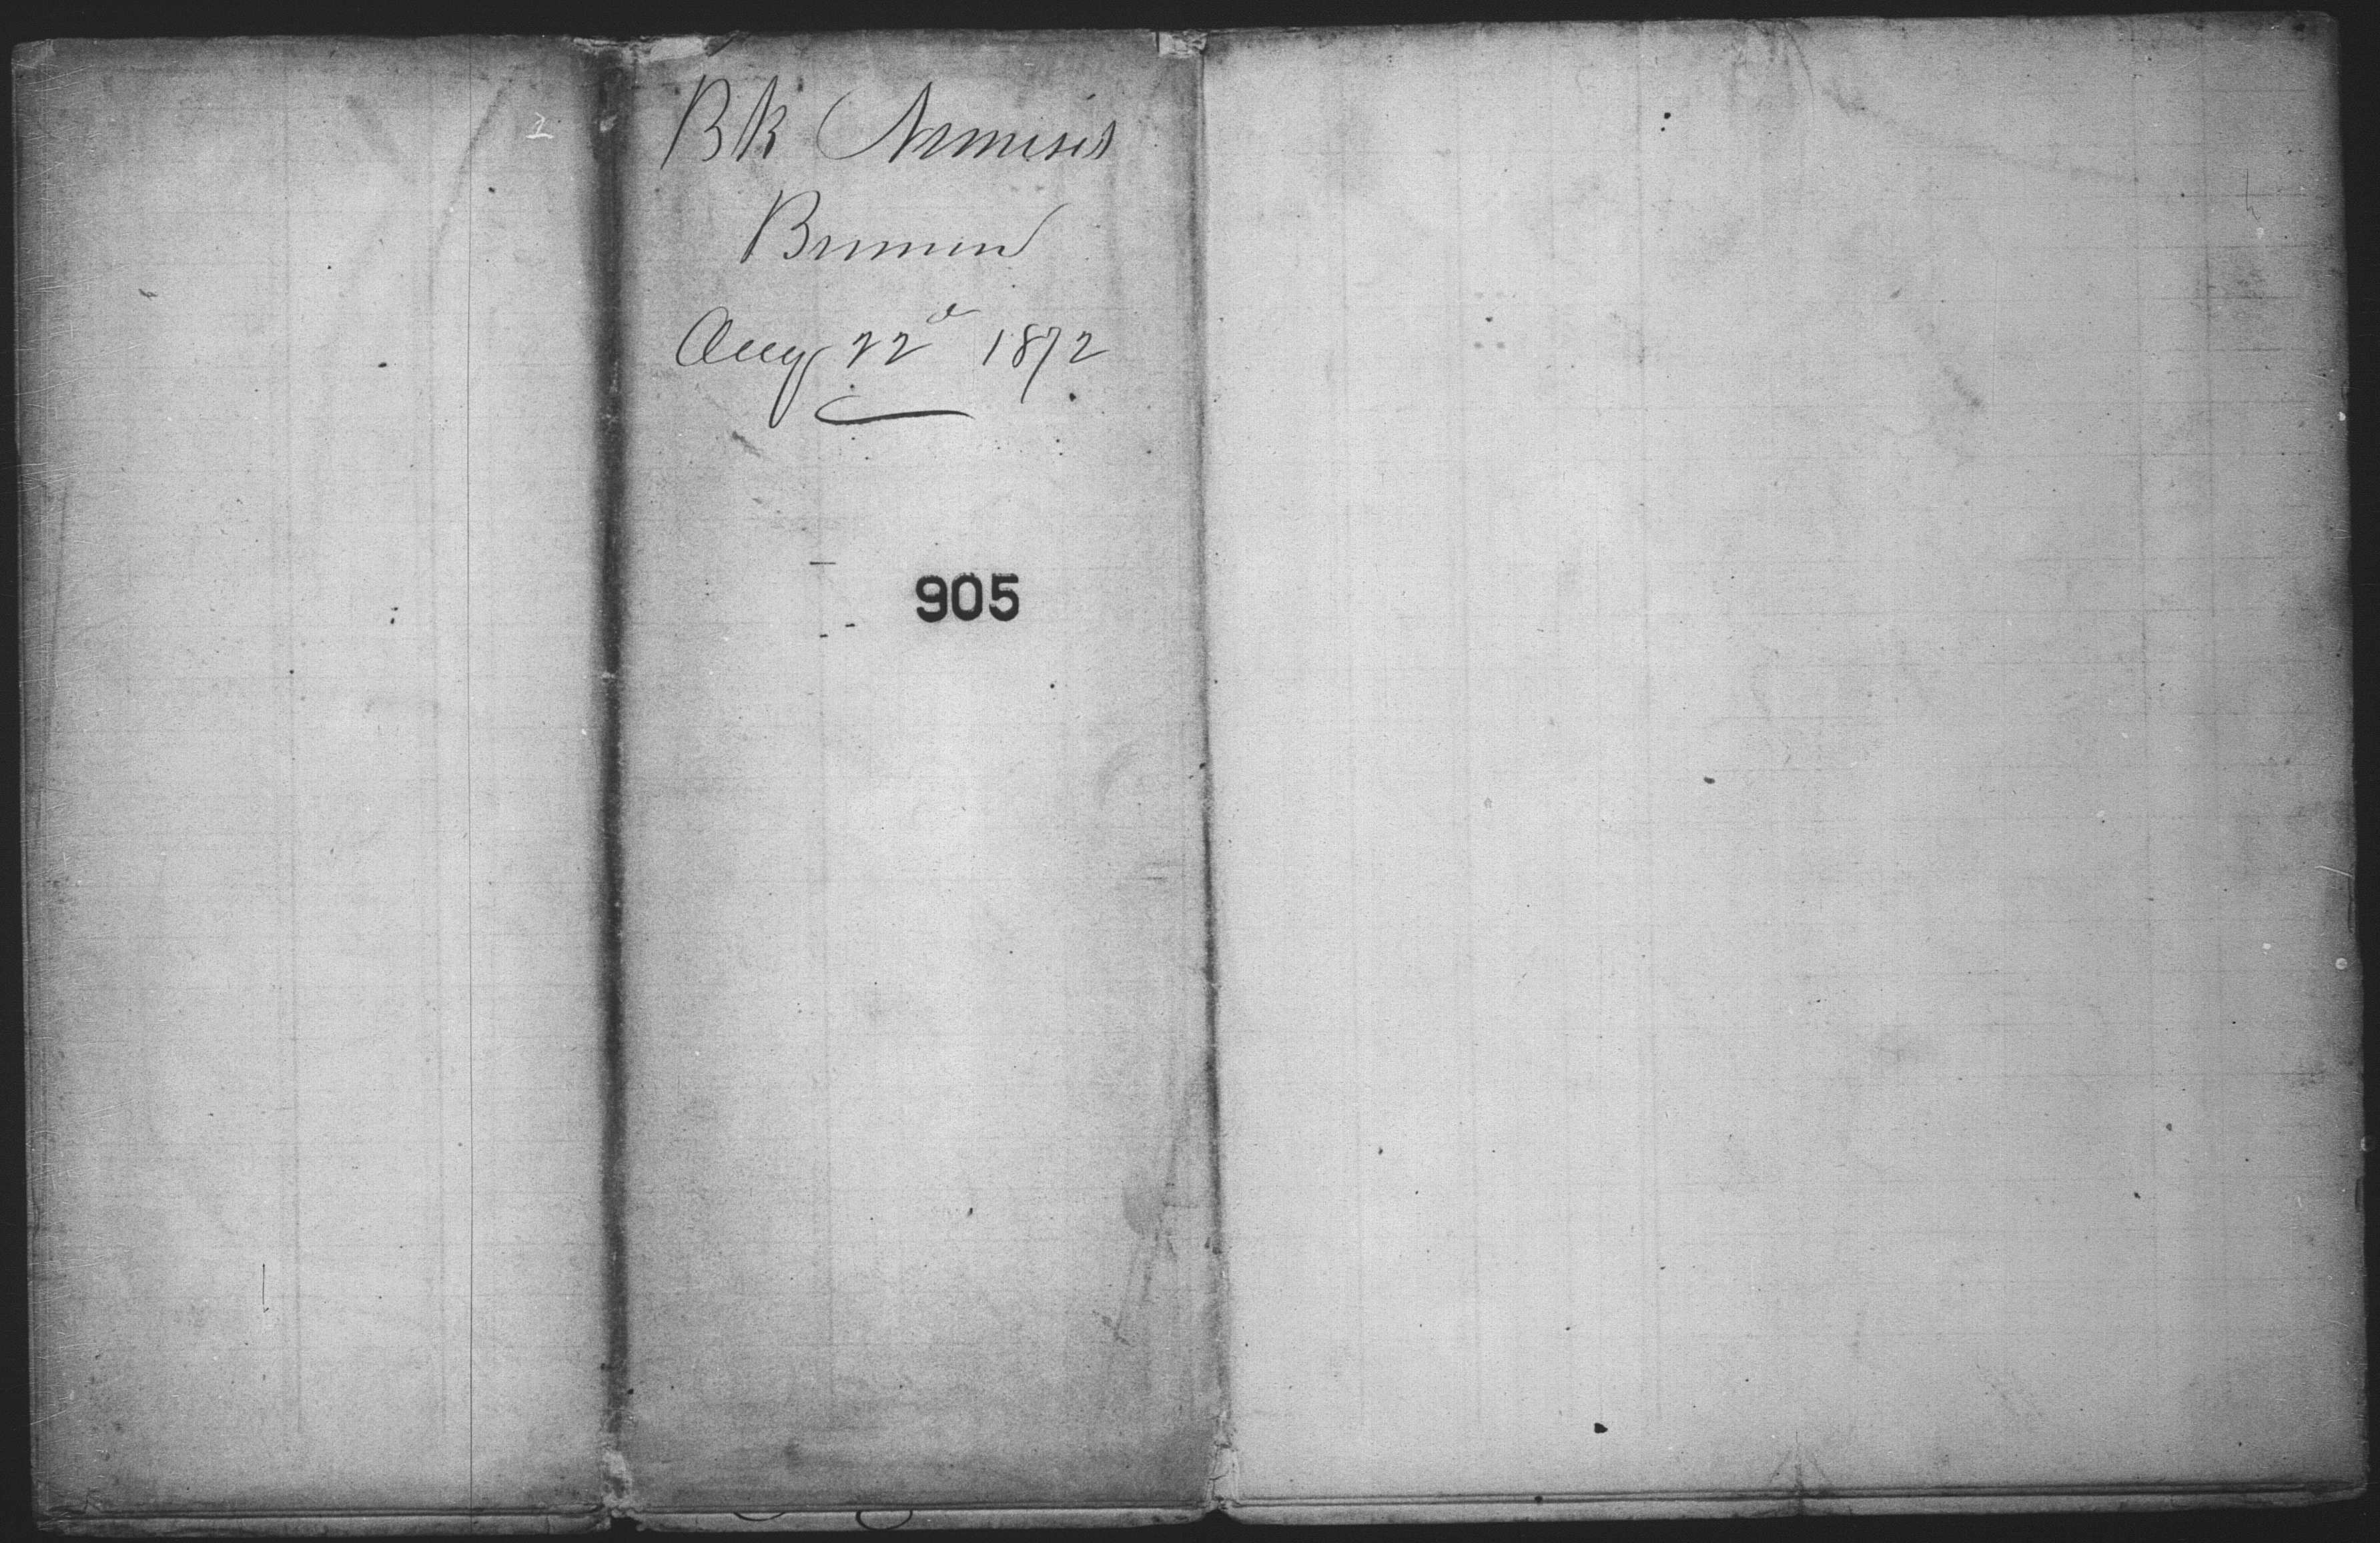 Bk Nemisis
Bremen
Aug 22d 1872
905